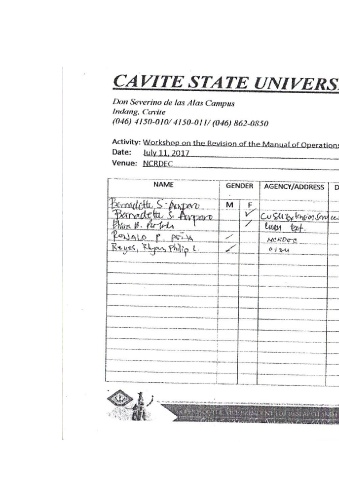 CAVITE STATE UNIVERS
Don Severino de las Alas Campus
Indang, Cavite
(046) 4150-010/ 4150-011/ (046) 862-0850
Activity: Workshop on the Revision of the Manual of Operations
Date: July 11, 2017
Venue: NCRDEC
NAME GENDER AGENCY/ADDRESS D
M F
Bernadette S. Amparo
Bernadette S. Amparo
Ronald P. Peña NCRDEC
Reyes, Philip L.